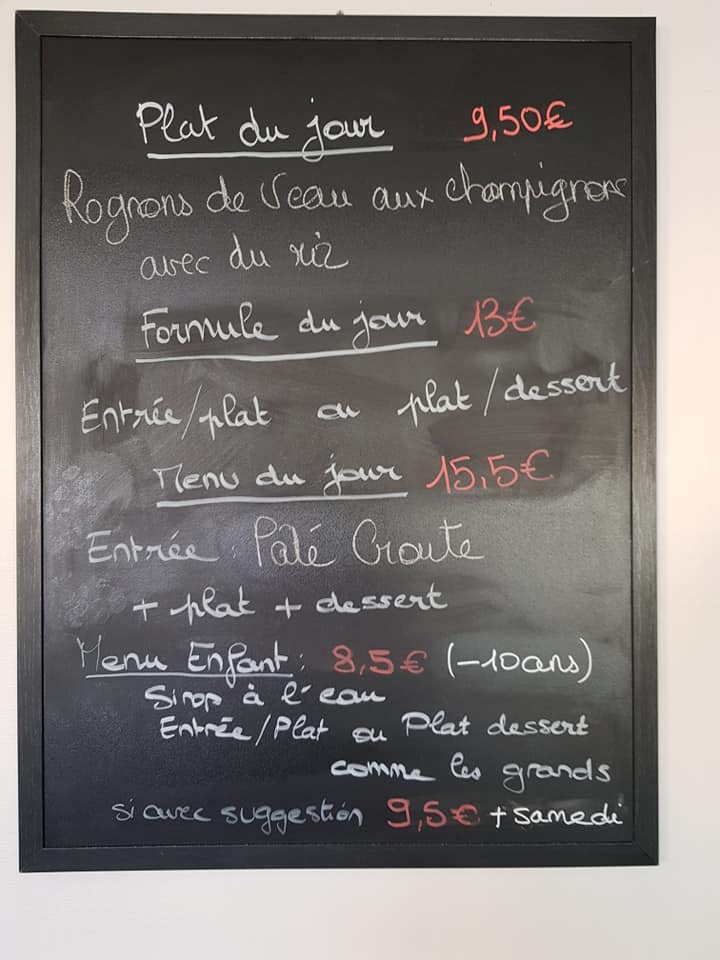 Plat du jour 9,50€
Rognons de Veau aux champignons
avec du riz
Formule du jour 13€
Entrée/plat ou plat/dessert
Menu du jour 15,5€
Entrée : Pâté Croute
+ plat + dessert
Menu Enfant : 8,5€ (-10ans)
Sirop à l'eau
Entrée/Plat ou Plat dessert
comme les grands
si avec suggestion 9,5€ + samedi